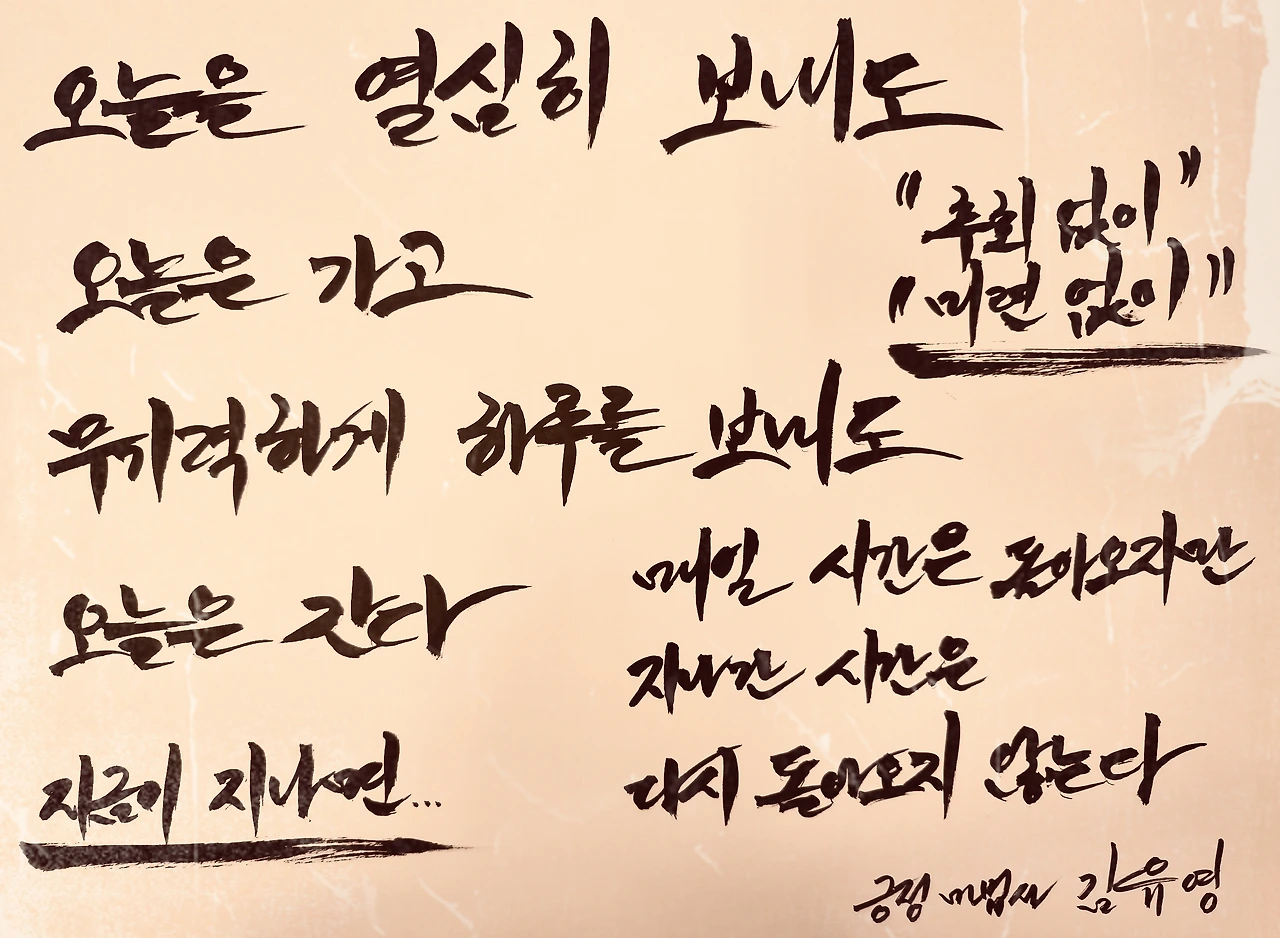 오늘은 열심히 보내도
오늘은 가고
"후회 없이"
"미련 없이"
무기력하게 하루를 보내도
오늘은 간다
지금이 지나면...
매일 시간은 돌아오지만
지나간 시간은
다시 돌아오지 않는다
긍정 마법사 김유영